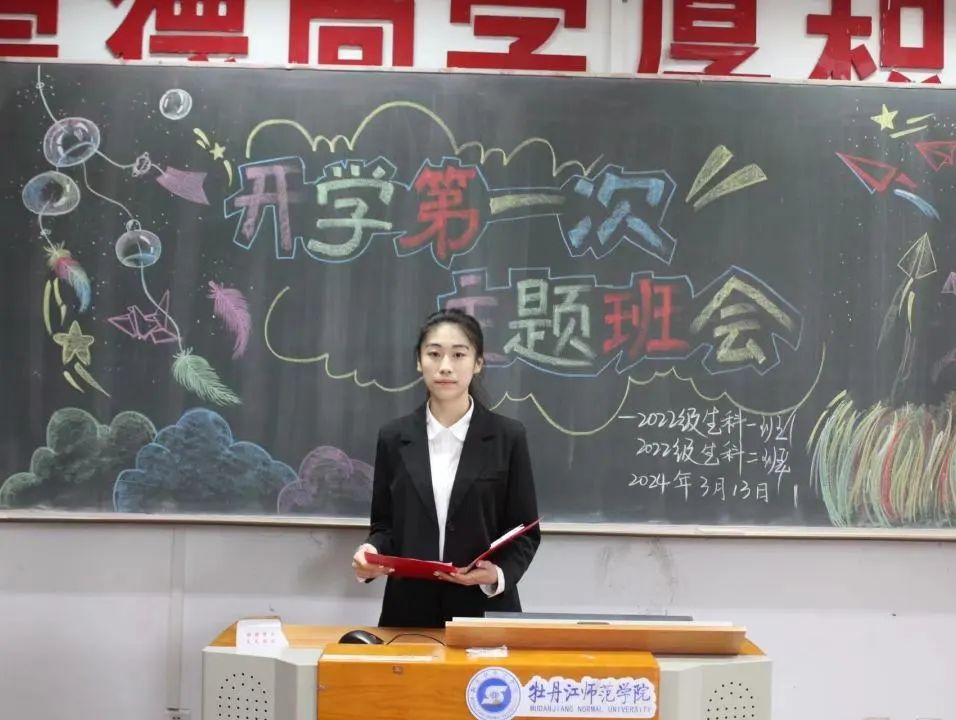 德高学厚积
开学第一次
主题班会
-2022级生科一班
2022级生科二班
2024年3月13日
牡丹江师范学院
MUDANJIANG NORMAL UNIVERSITY